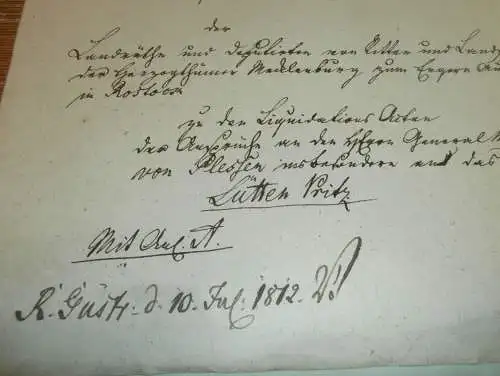 der
Landräthe und Deputirten von Ritter und Land
der Herzogthümer Mecklenburg zum Engern Au
in Rostock
zu den Liquidations Acten
der Ansprüche an den Herrn General
von Plessen insbesondere and das
Lütten Pritz
Mit Anl. A.
R. Güstr. d. 10. Jul. 1812.